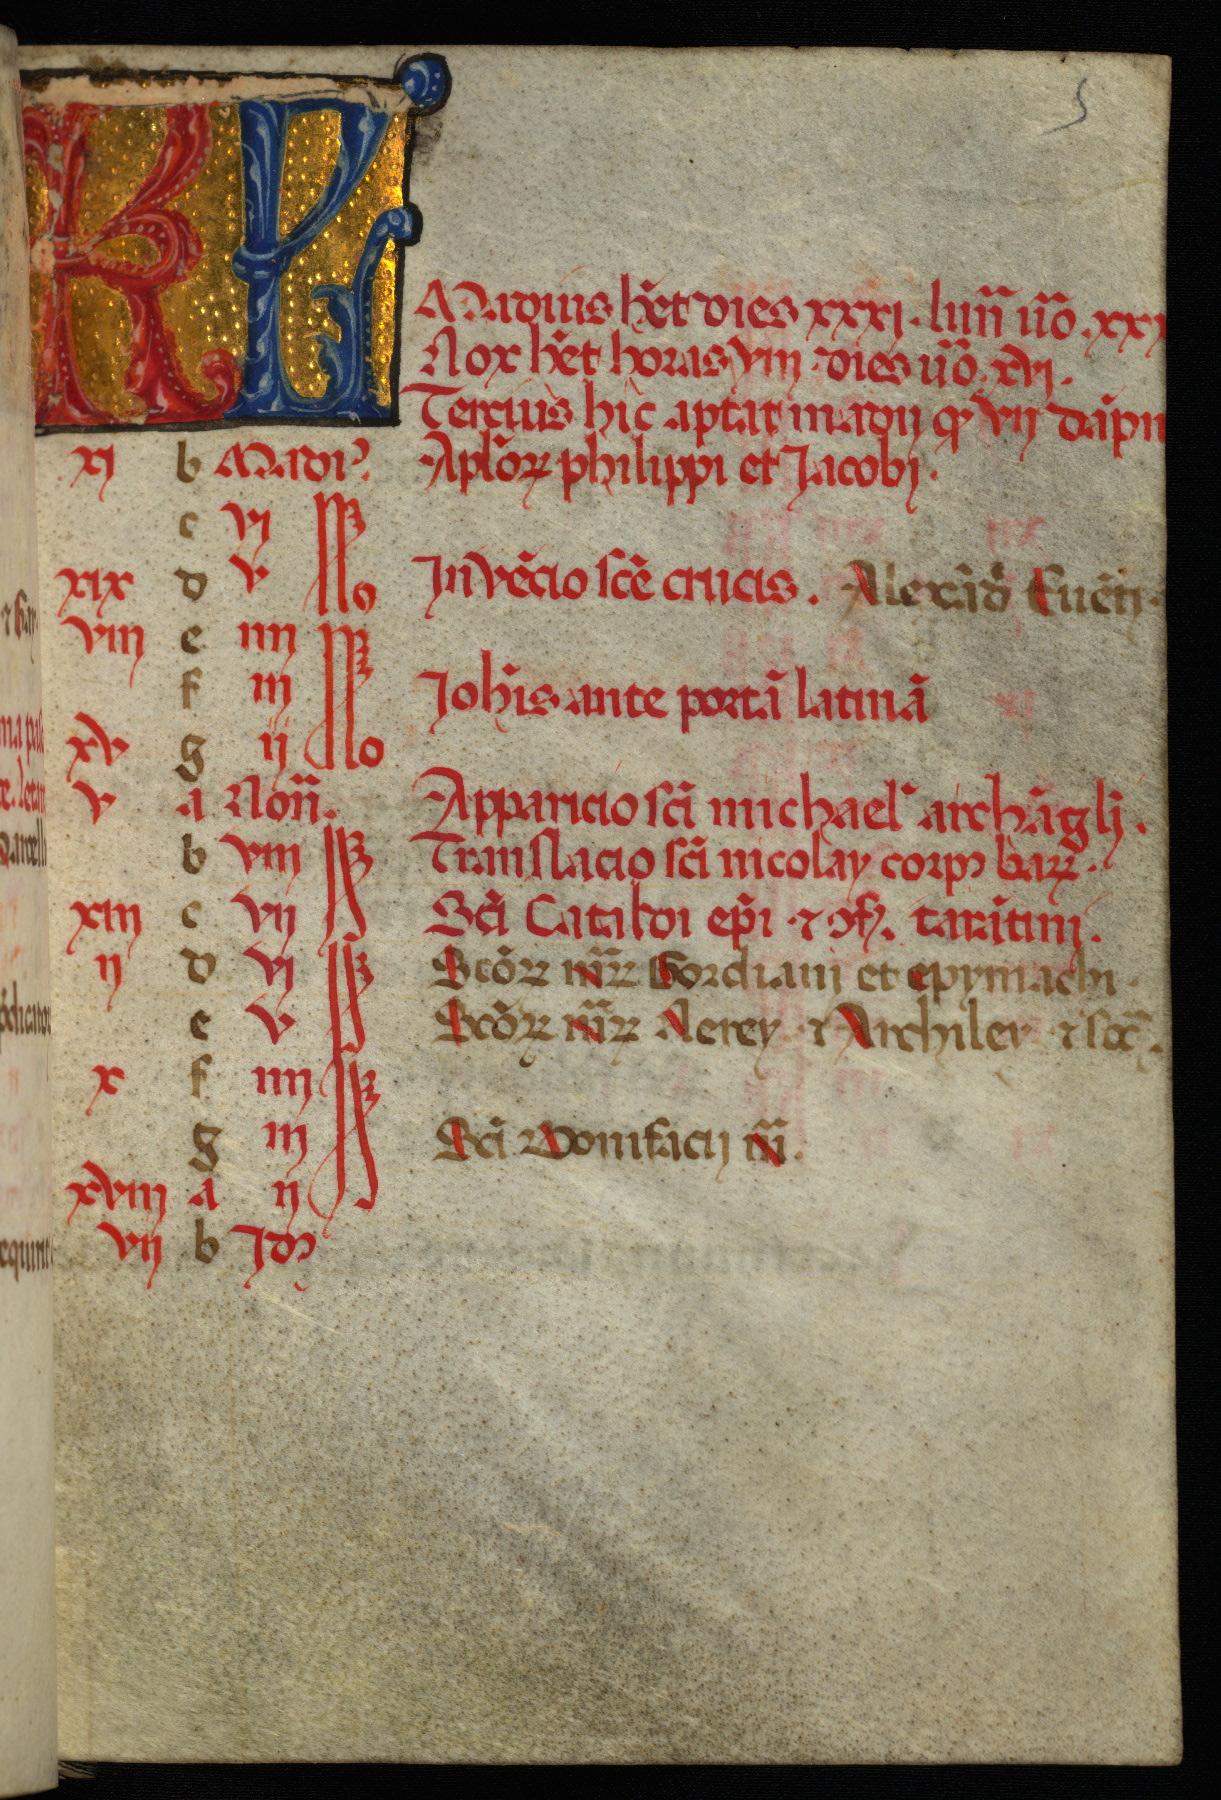 5
KL
Madius h̄et dies xxxi. lun̄ ūo. xxx
Nox h̄et horas viii. dies ūo. xvi.
Tercius hic aptat̄ madii qꝫ vii
xi b Madiꝰ Apl̄oꝝ philippi et Jacobi.
c vi
xix d v Jnvēcio sc̄e crucis. Alexād̄ Euēti
viii e iiii
f iii Joh̄is ante portā latinā
xv g ii
v a Non̄. Apparicio sc̄i michael' archāgli.
b viii Translacio sc̄i nicolay corpꝰ bar̄.
xiii c vii Sc̄i Cataldi ep̄i ⁊ ꝯf. tarātini.
ii d vi Sc̄oꝝ m̄ꝝ Gordiani et epymachi.
e v Sc̄oꝝ m̄ꝝ Nerey ⁊ Archiley ⁊ soc̄.
x f iiii
g iii Sc̄i Bonifacii m̄.
xviii a ii
vii b Jdꝰ